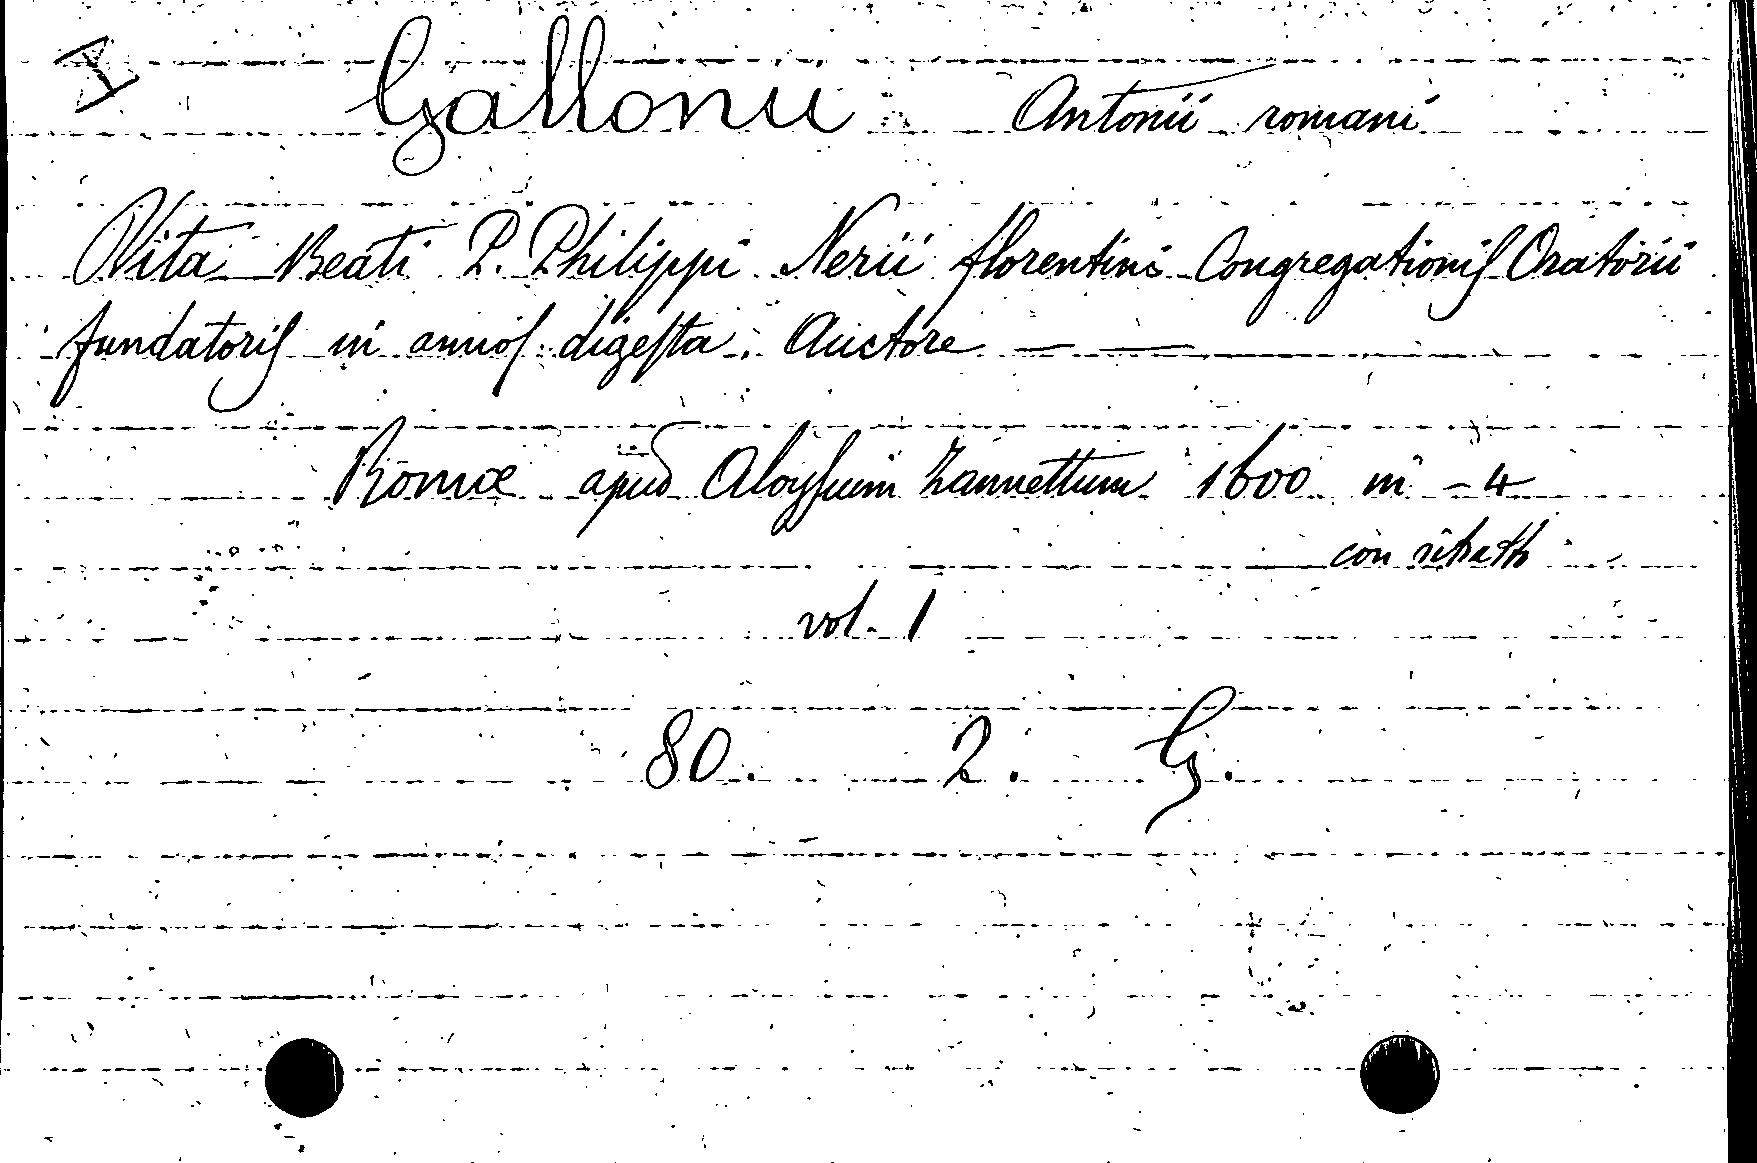 A
Gallonii Antonii romani
Vita Beati P. Philippi Nerii florentini Congregationis Oratorii
fundatoris in annos digesta. Auctore — —
Romæ apud Aloysium Zannettum 1600 in - 4
con ritratto
vol. 1
80. 2. G.